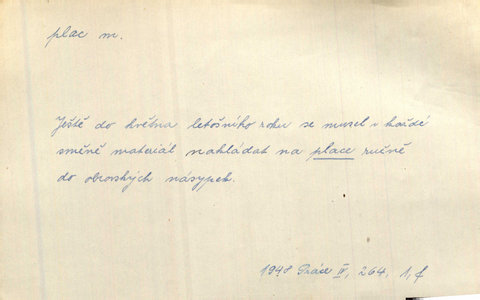 plac m.
Ještě do května letošního roku se musel v každé
směně materiál nakládat na place ručně
do obrovských násypek.
1948 Práce IV, 264, 1, f